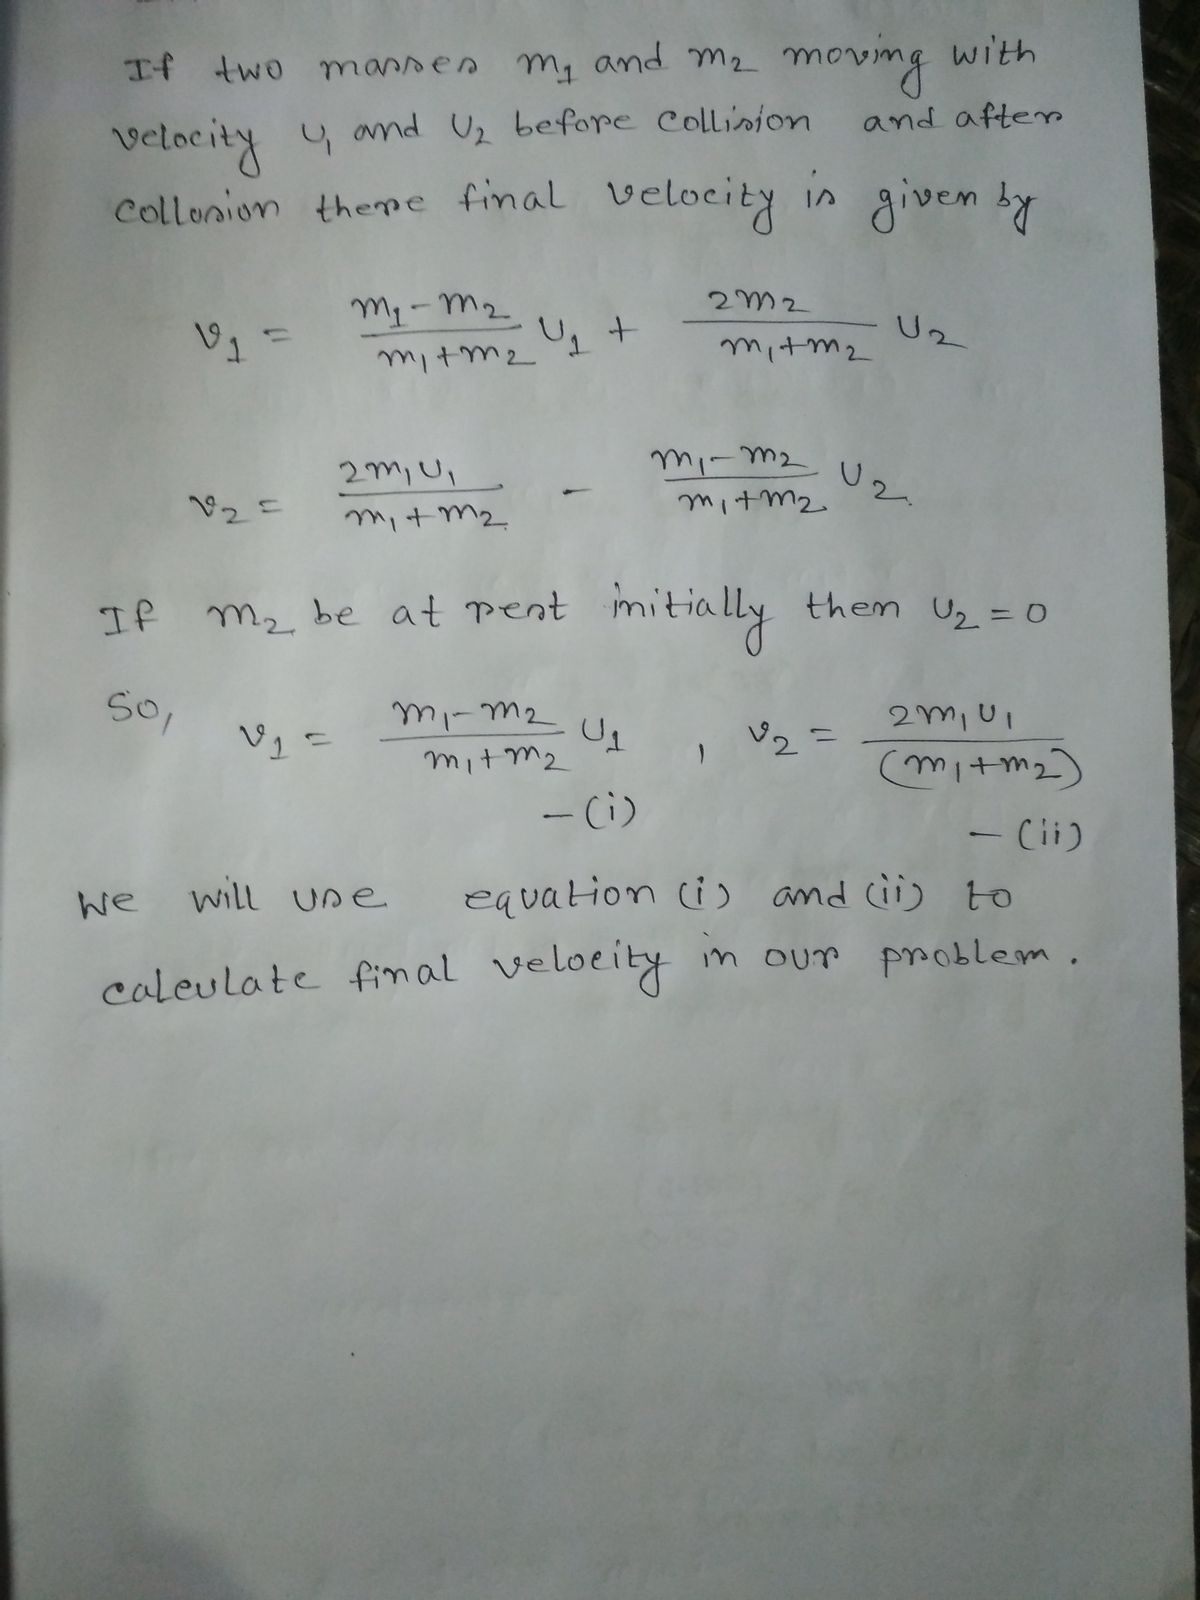 If two masses m₁ and m₂ moving with
velocity U₁ and U₂ before collision and after
collosion there final velocity is given by
v₁ = (m₁-m₂)/(m₁+m₂) U₁ + 2m₂/(m₁+m₂) U₂
v₂ = 2m₁U₁/(m₁+m₂) - (m₁-m₂)/(m₁+m₂) U₂.
If m₂ be at rest initially then U₂ = 0
So, v₁ = (m₁-m₂)/(m₁+m₂) U₁ , v₂ = 2m₁U₁/(m₁+m₂)
-(i)
-(ii)
We will use equation (i) and (ii) to
calculate final velocity in our problem.